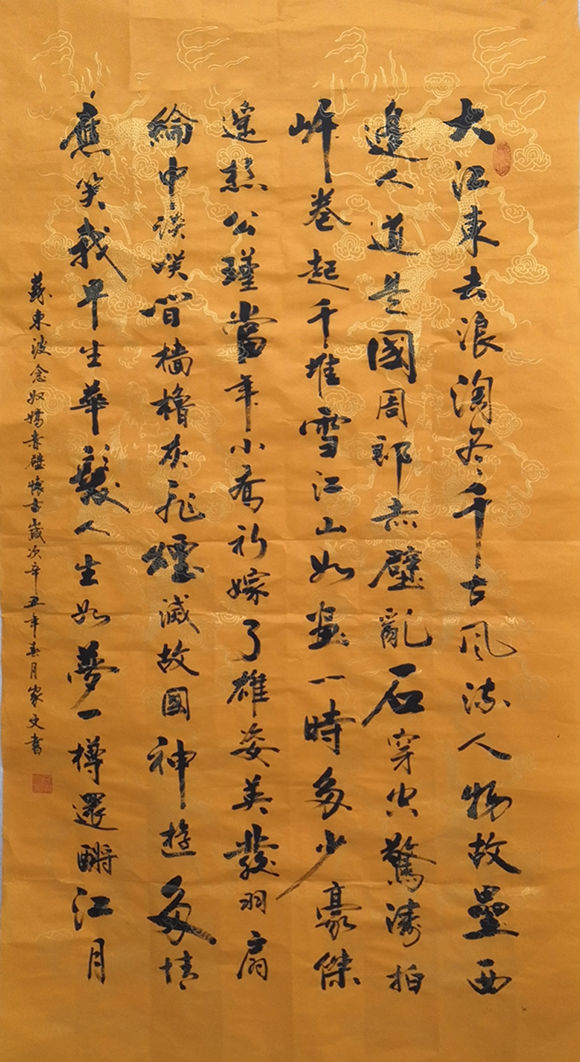 大江東去浪淘尽千古風流人物故壘西
邊人道是國周郎赤壁亂石穿空驚濤拍
岍卷起千堆雪江山如畫一時多少豪傑
遥想公瑾當年小喬初嫁了雄姿英發羽扇
綸巾談笑間檣櫓灰飛煙滅故國神遊多情
應笑我早生華髮人生如夢一樽還酹江月
蘇東波念奴嬌赤壁懷古歲次辛丑年月家文書